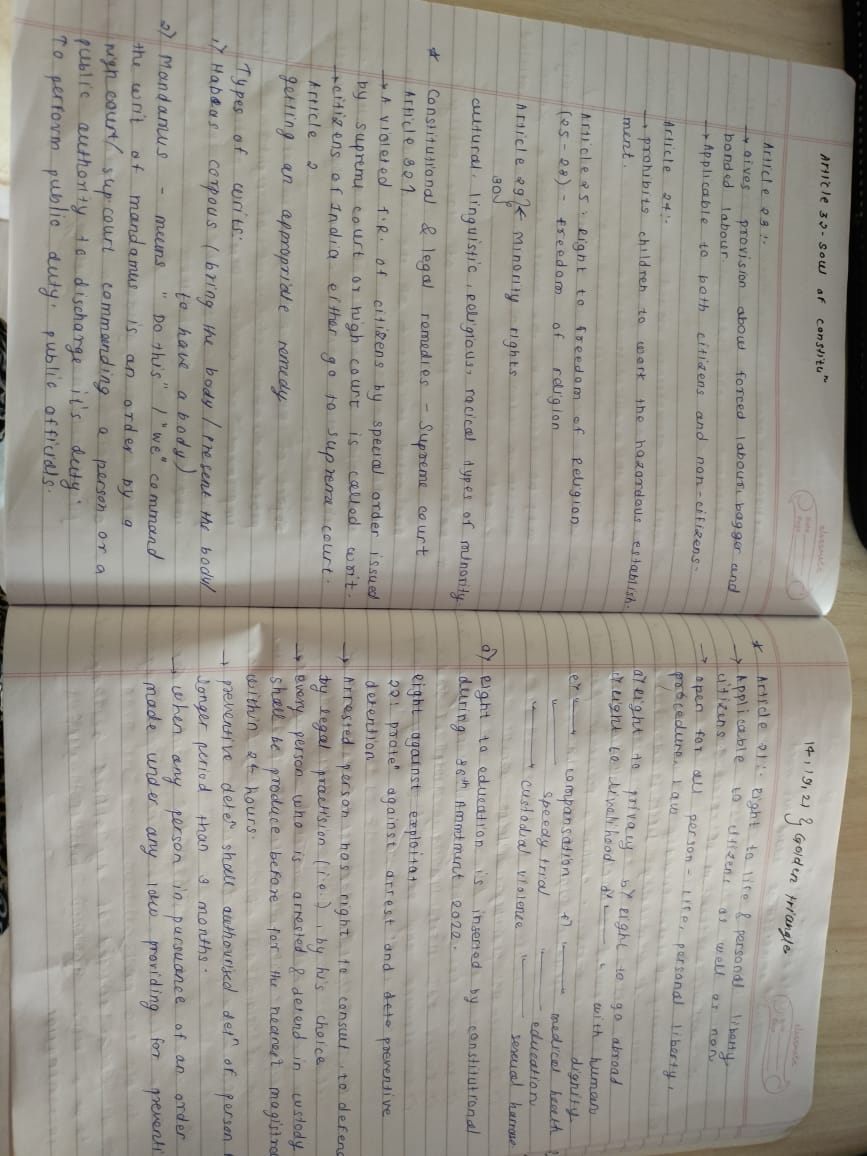 Article 32 - soul of constituⁿ
Article 23 :-
→ Gives provision about forced labour, baggar and
bonded labour.
→ Applicable to both citizens and non-citizens.
Article 24 :-
→ prohibits children to work the hazardous establish-
ment.
Article 25 : Right to freedom of Religion
(25 - 28) - freedom of religion
Article 29 & minority rights
30
cultural, linguistic, religious, racical types of minority
* Constitutional & legal remedies - Supreme court
Article 32
→ A violated F.R. of citizens by special order issued
by supreme court or high court is called writ.
→ citizens of India either go to supreme court.
Article 2
getting an appropriate remedy
Types of writs:
1) Habeas corpous (bring the body / Present the body /
to have a body)
2) Mandamus - means "Do this" / "we" command
the writ of mandamus is an order by a
high court / sup court commanding a person or a
public authority to discharge it's duty.
To perform public duty, public officials.
14, 19, 21 } Golden triangle
* Article 21 : Right to life & personal liberty
→ Applicable to citizens as well as non
citizens
→ open for all person - life, personal liberty,
procedure, law
a) Right to privacy b) Right to go abroad
c) Right to livelihood d) " with human
dignity
e) compansation f) medical health
speedy trial education
custodial violence sexual
a) Right to education is inserted by constitutional
during 86th Ammtment 2022.
Right against exploitatⁿ
22 : proteⁿ against arrest and preventive
detention
→ Arrested person has right to consult, to defend
by legal practision (i.e.), by his choice
→ Every person who is arrested & detend in custody
shall be produce before for the nearest magistra
within 24 hours.
→ preventive deteⁿ shall authourised detⁿ of person
longer period than 3 months.
→ When any person in pursuance of an order
made under any law providing for preventi